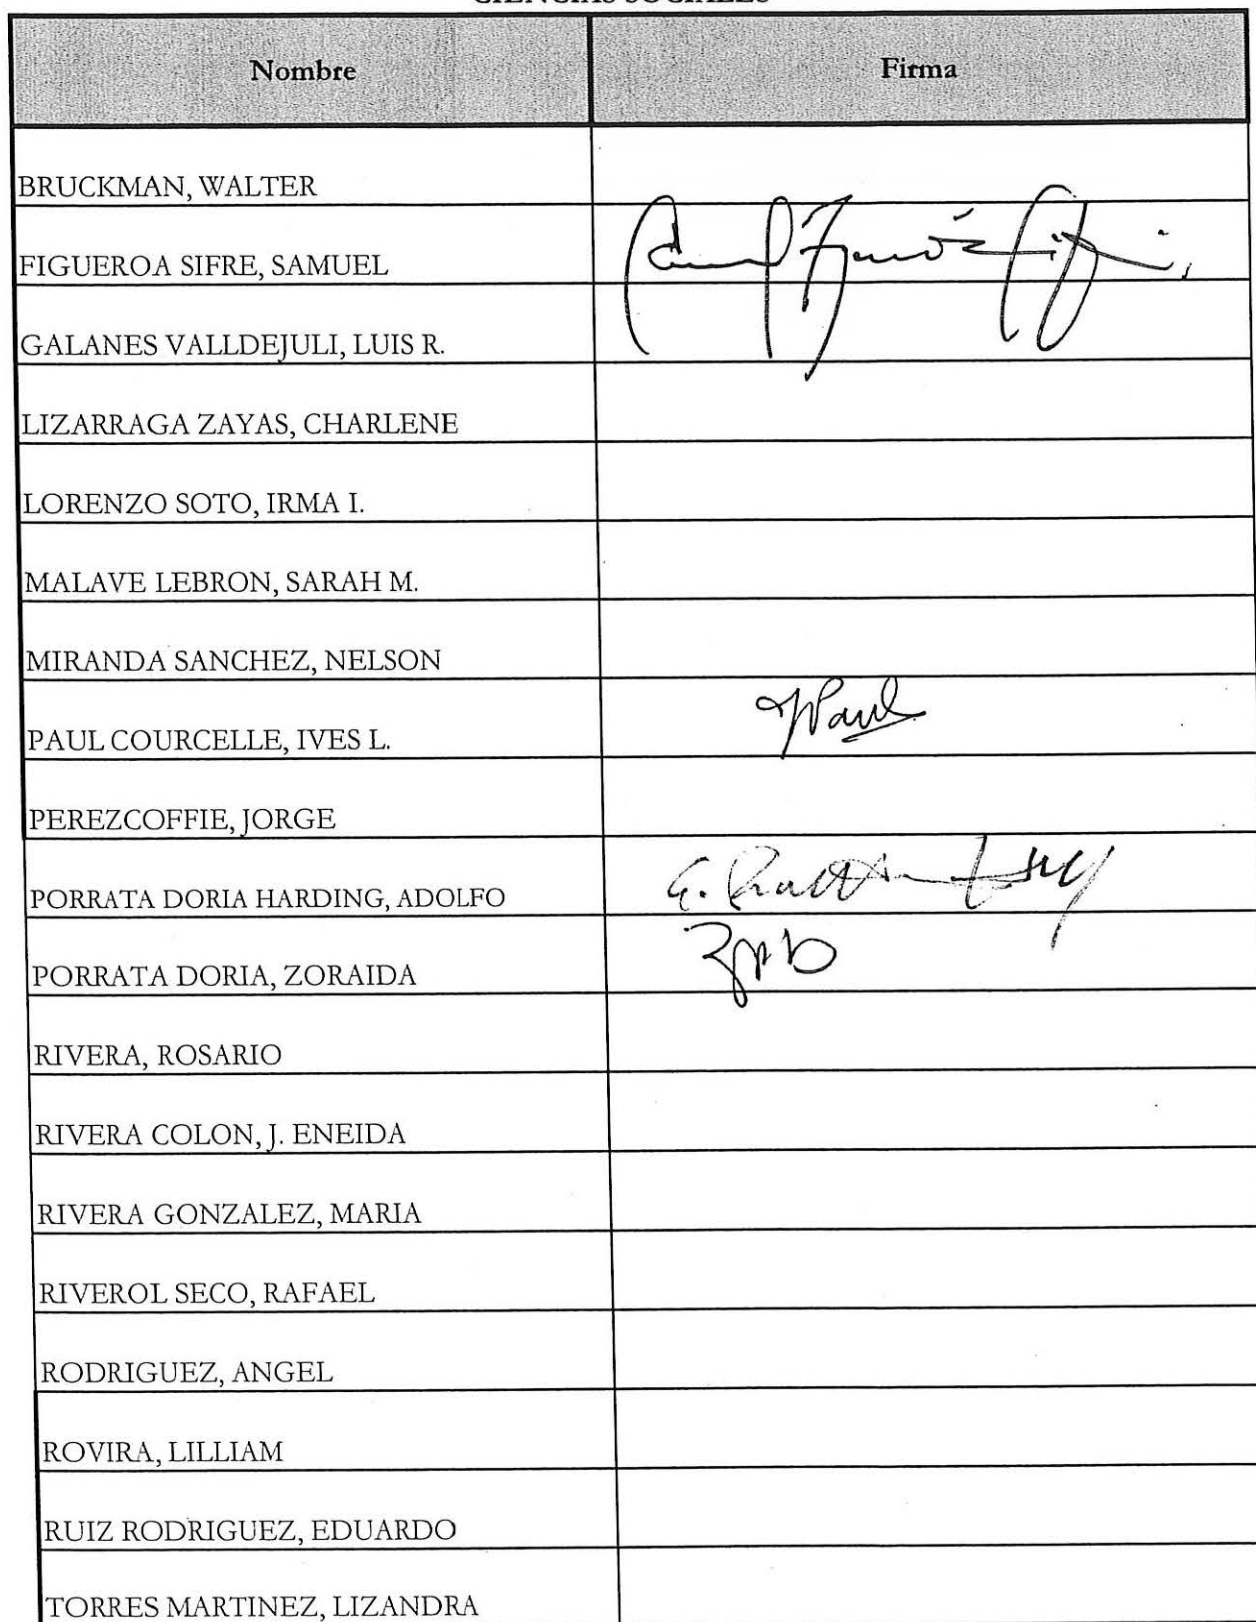 CIENCIAS SOCIALES
Nombre Firma
BRUCKMAN, WALTER
FIGUEROA SIFRE, SAMUEL
GALANES VALLDEJULI, LUIS R.
LIZARRAGA ZAYAS, CHARLENE
LORENZO SOTO, IRMA I.
MALAVE LEBRON, SARAH M.
MIRANDA SANCHEZ, NELSON
PAUL COURCELLE, IVES L.
PEREZCOFFIE, JORGE
PORRATA DORIA HARDING, ADOLFO
PORRATA DORIA, ZORAIDA
RIVERA, ROSARIO
RIVERA COLON, J. ENEIDA
RIVERA GONZALEZ, MARIA
RIVEROL SECO, RAFAEL
RODRIGUEZ, ANGEL
ROVIRA, LILLIAM
RUIZ RODRIGUEZ, EDUARDO
TORRES MARTINEZ, LIZANDRA